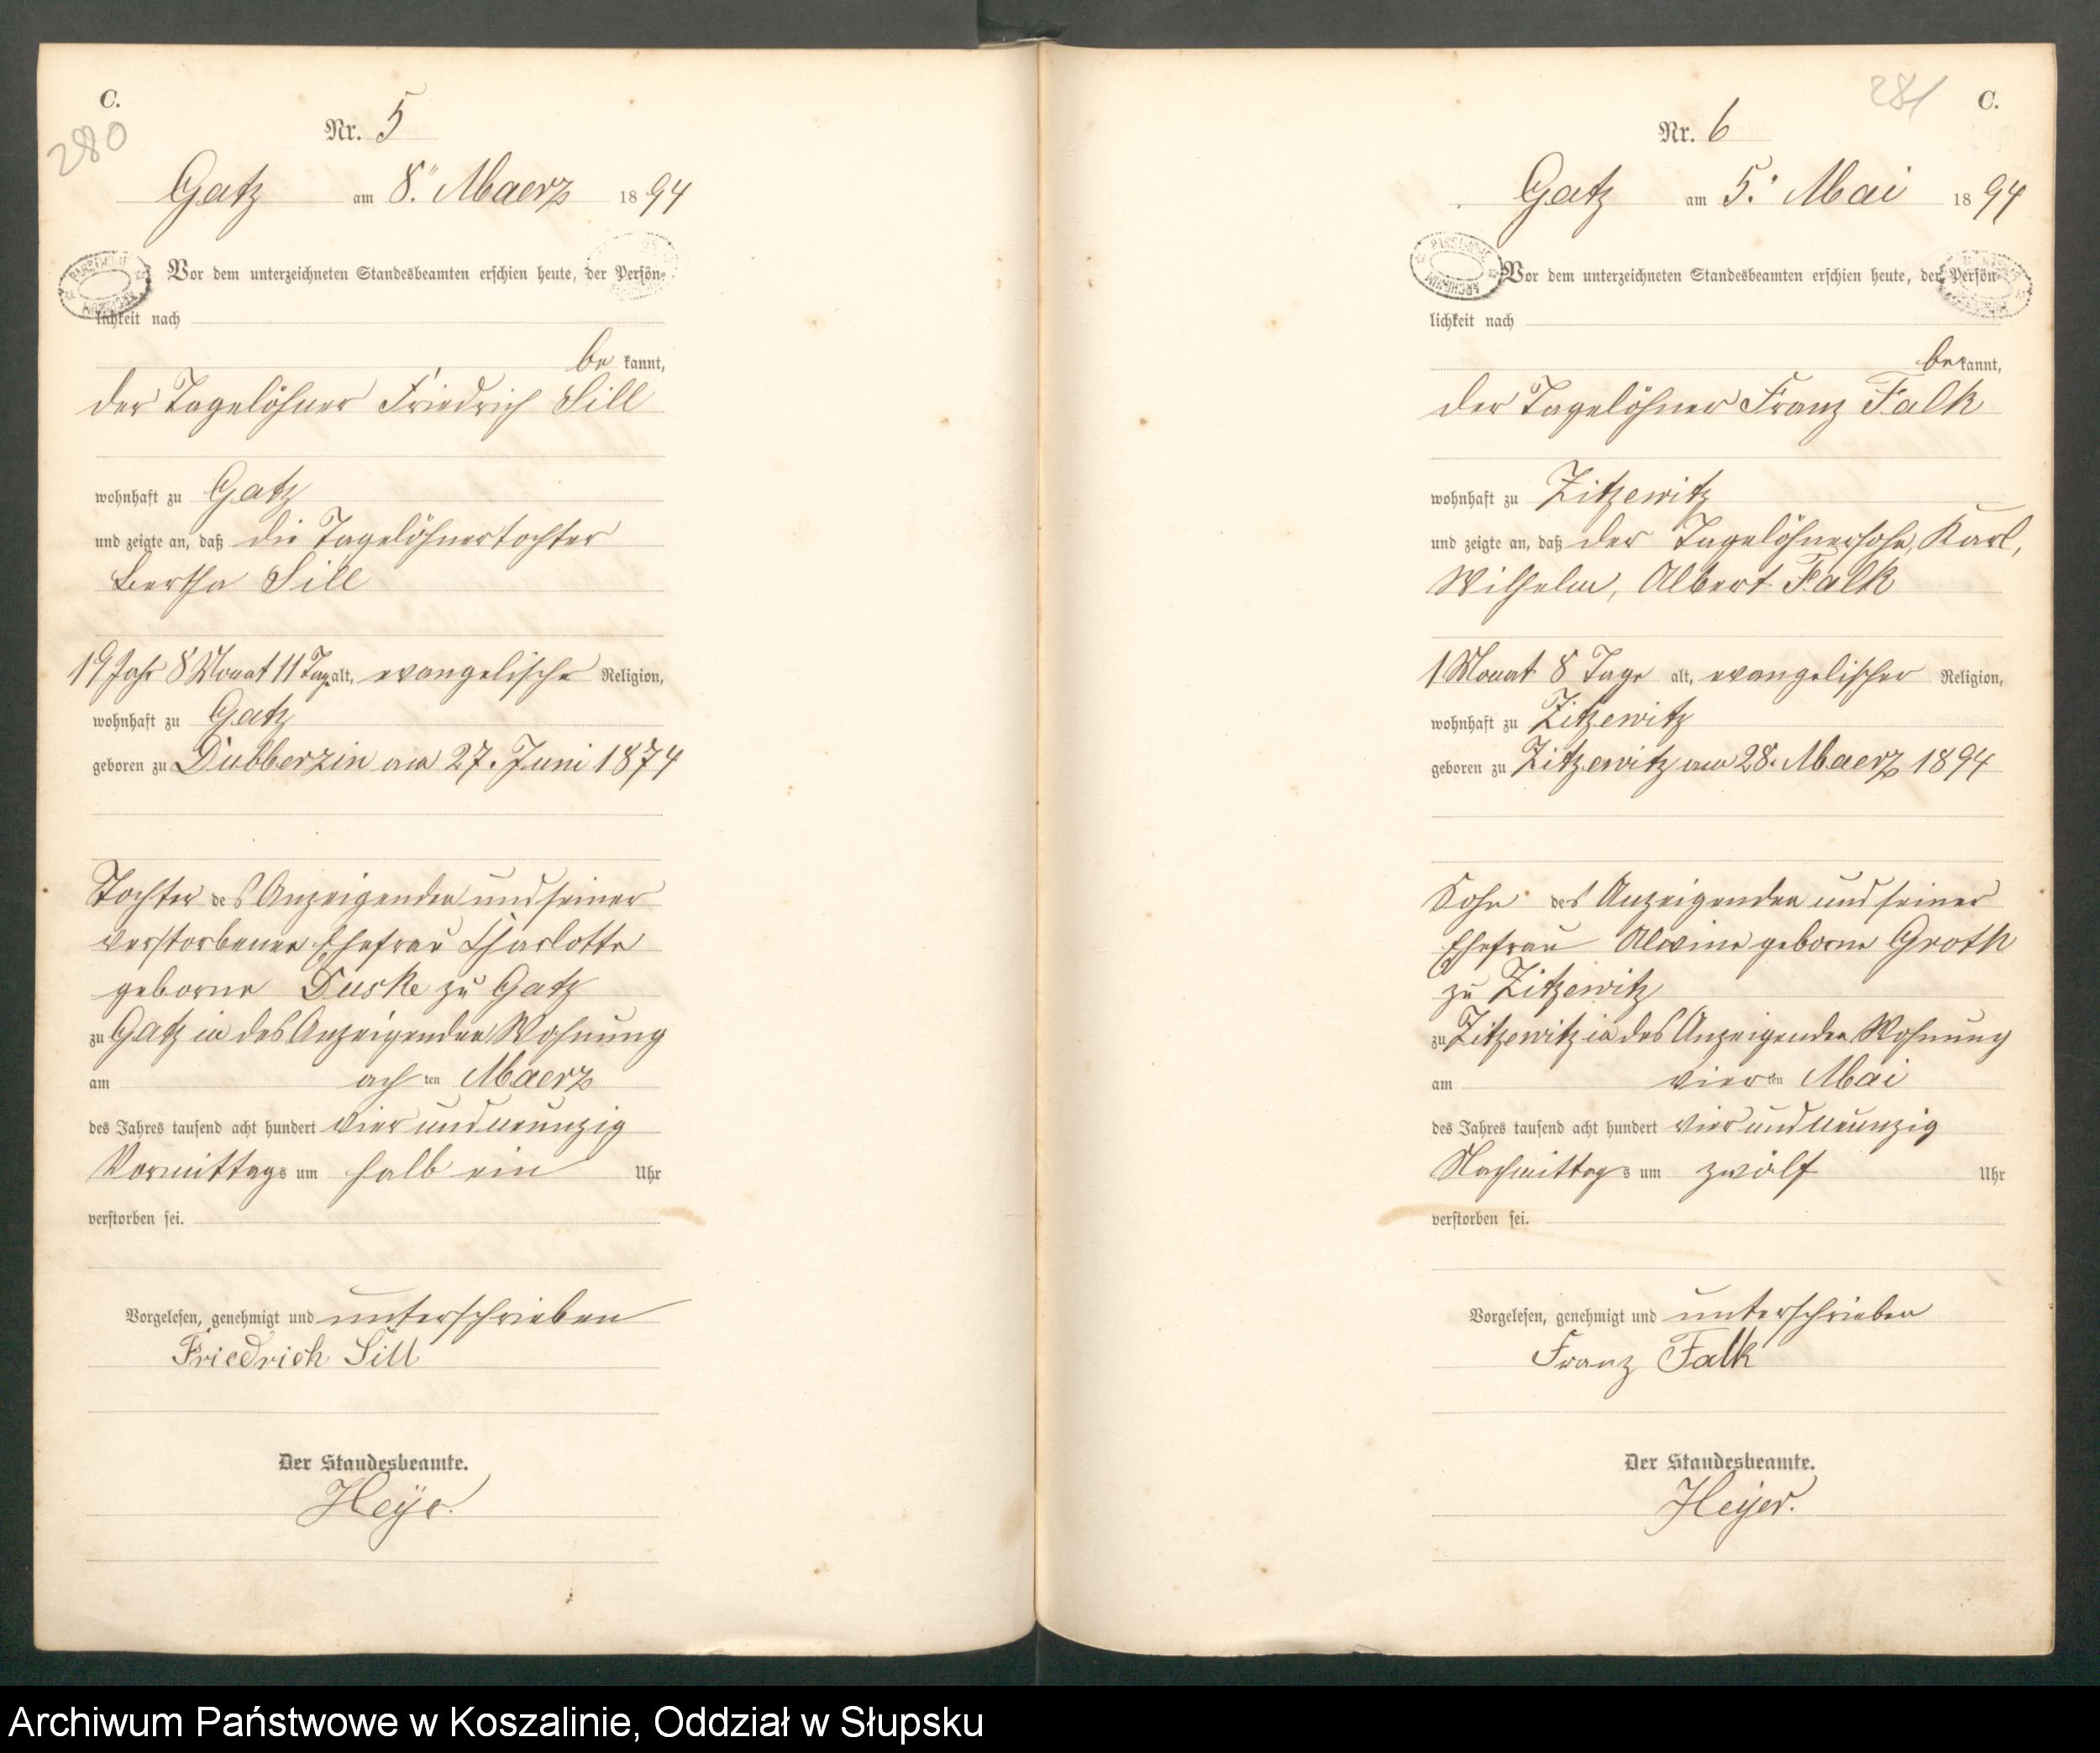 C.
280
Nr. 5
Gatz am 8. Maerz 1894
Vor dem unterzeichneten Standesbeamten erschien heute, der Persön-
lichkeit nach
be kannt,
der Tagelöhner Friedrich Sill
wohnhaft zu Gatz
und zeigte an, daß die Tagelöhnertochter
Bertha Sill
19 Jahr 8 Monat 11 Tag alt, evangelische Religion,
wohnhaft zu Gatz
geboren zu Dubberzin am 27. Juni 1874
Tochter des Anzeigenden und seiner
verstorbenen Ehefrau Charlotte
geborne Duske zu Gatz
zu Gatz in des Anzeigenden Wohnung
am achten Maerz
des Jahres tausend acht hundert vier und neunzig
Vormittags um halb ein Uhr
verstorben sei.
Vorgelesen, genehmigt und unterschrieben
Friedrich Sill
Der Standesbeamte.
Heyer.
281
C.
Nr. 6
Gatz am 5. Mai 1894
Vor dem unterzeichneten Standesbeamten erschien heute, der Persön-
lichkeit nach
bekannt,
der Tagelöhner Franz Falk
wohnhaft zu Zitzewitz
und zeigte an, daß der Tagelöhnersohn, Karl,
Wilhelm, Albert Falk
1 Monat 8 Tage alt, evangelischer Religion,
wohnhaft zu Zitzewitz
geboren zu Zitzewitz am 28. Maerz 1894
Sohn des Anzeigenden und seiner
Ehefrau Alwine geborne Groth
zu Zitzewitz
zu Zitzewitz in des Anzeigenden Wohnung
am vierten Mai
des Jahres tausend acht hundert vier und neunzig
Nachmittags um zwölf Uhr
verstorben sei.
Vorgelesen, genehmigt und unterschrieben
Franz Falk
Der Standesbeamte.
Heyer.
Archiwum Państwowe w Koszalinie, Oddział w Słupsku